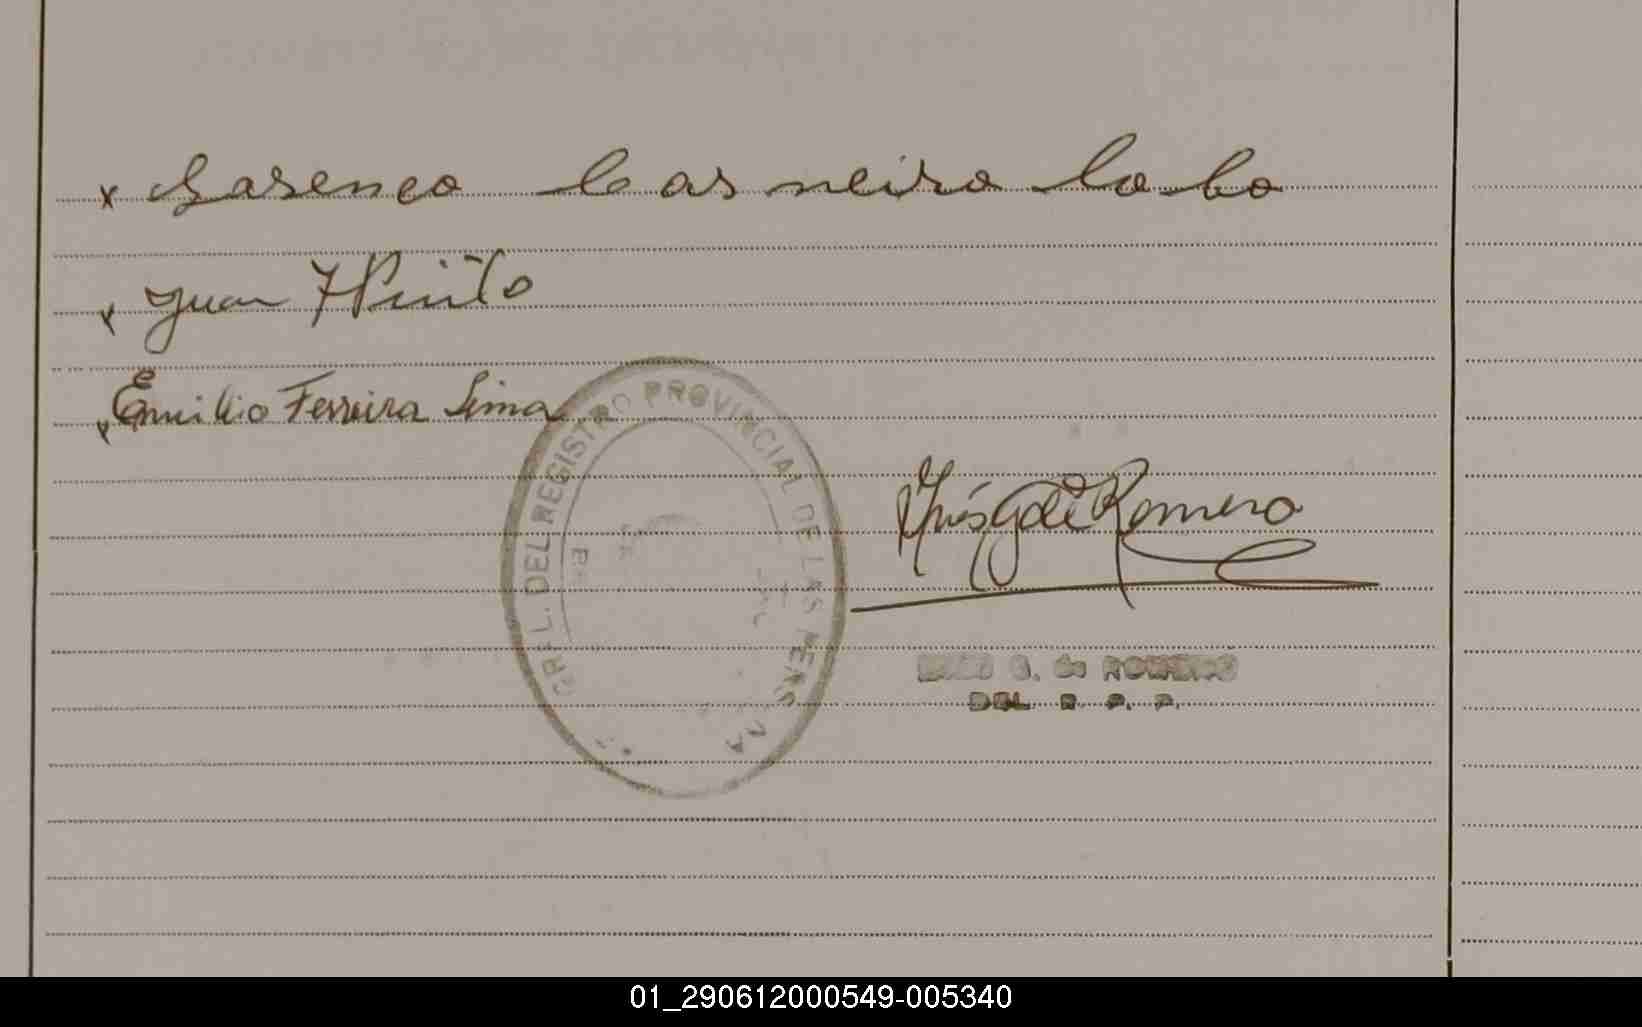 x Garenco Carneiro Lobo
x Juan F Pinto
x Emilio Ferreira Lima
GRAL. DEL REGISTRO PROVINCIAL DE LAS PERSONA
Inés G de Romero
G. de ROMERO
DEL R. P. P.
01_290612000549-005340